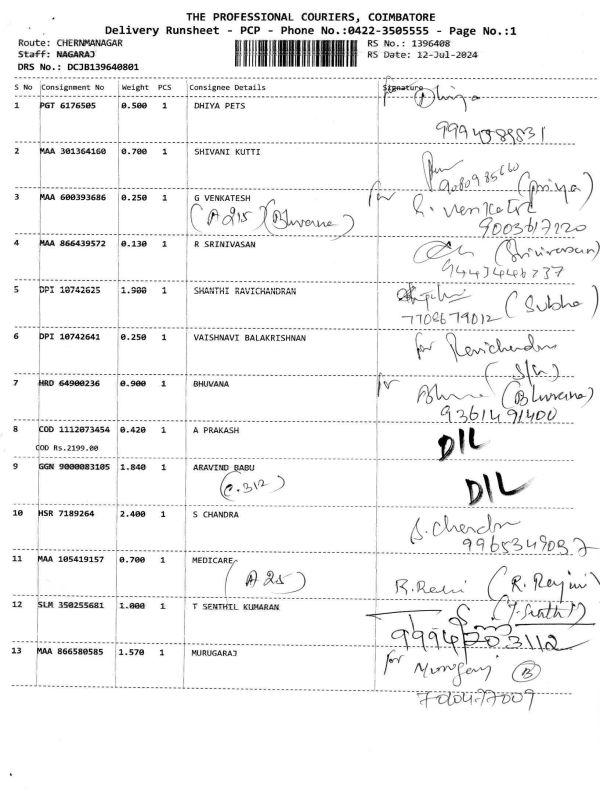 THE PROFESSIONAL COURIERS, COIMBATORE
Delivery Runsheet - PCP - Phone No.:0422-3505555 - Page No.:1
Route: CHERNMANAGAR RS No.: 1396408
Staff: NAGARAJ RS Date: 12-Jul-2024
DRS No.: DCJB139640801
S No Consignment No Weight PCS Consignee Details Signature
1 PGT 6176505 0.500 1 DHIYA PETS for Dhiya
2 MAA 301364160 0.700 1 SHIVANI KUTTI
9080985660 (Priya)
3 MAA 600393686 0.250 1 G VENKATESH for R. Venkatesh
(A 215) (Bhuvana) 9003617720
4 MAA 866439572 0.130 1 R SRINIVASAN (Srinivasan)
9443446237
5 DPI 10742625 1.900 1 SHANTHI RAVICHANDRAN
7708679012 (Subha)
6 DPI 10742641 0.250 1 VAISHNAVI BALAKRISHNAN for Ravichandran
7 HRD 64900236 0.900 1 BHUVANA for (Bhuvana)
9361491400
8 COD 1112073454 0.420 1 A PRAKASH DIL
COD Rs.2199.00
9 GGN 9000083105 1.840 1 ARAVIND BABU DIL
(C.312)
10 HSR 7189264 2.400 1 S CHANDRA S. Chandra
9965349037
11 MAA 105419157 0.700 1 MEDICARE
(A 25) (R. Rajini)
12 SLM 350255681 1.000 1 T SENTHIL KUMARAN
9994203112
13 MAA 866580585 1.570 1 MURUGARAJ for Murugaraj (B)